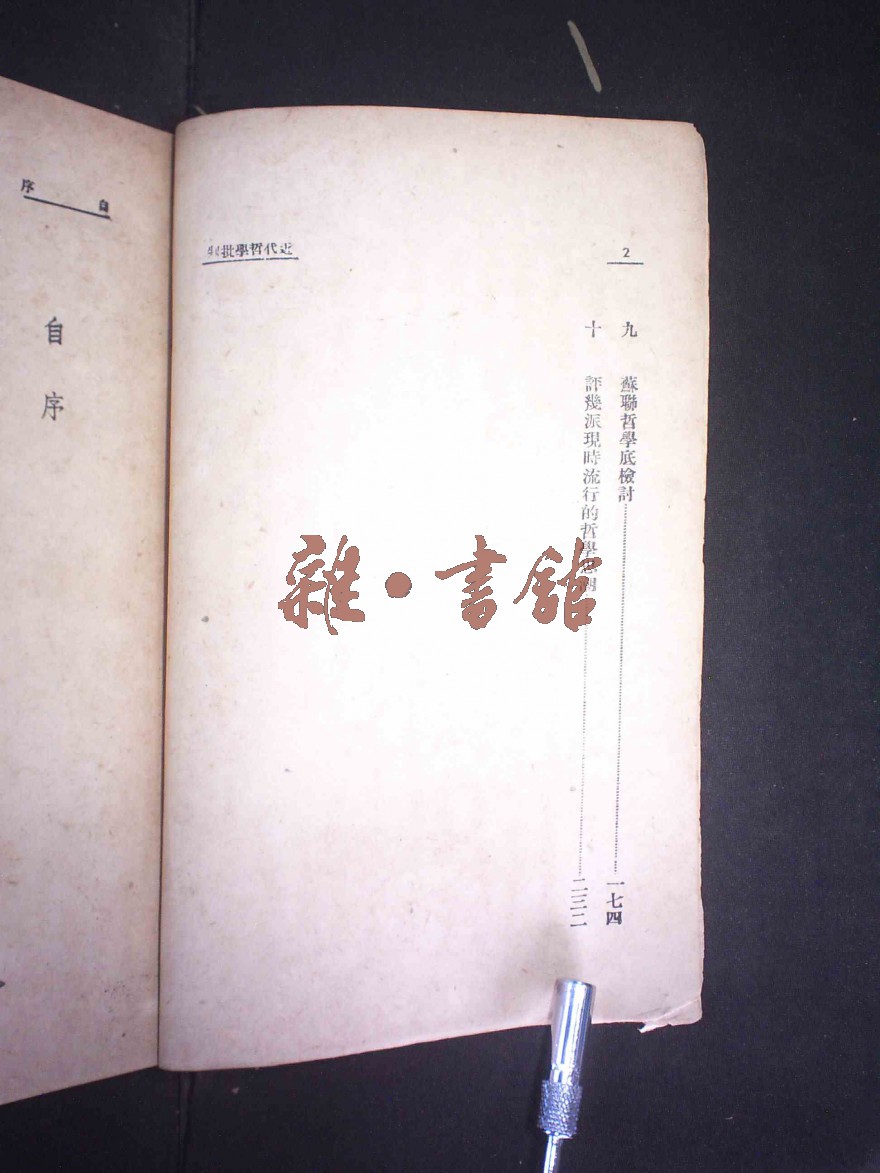 2
近代哲學批判
九　蘇聯哲學底檢討……一七四
十　評幾派現時流行的哲學思潮……二三二
自序
自序
雜·書館